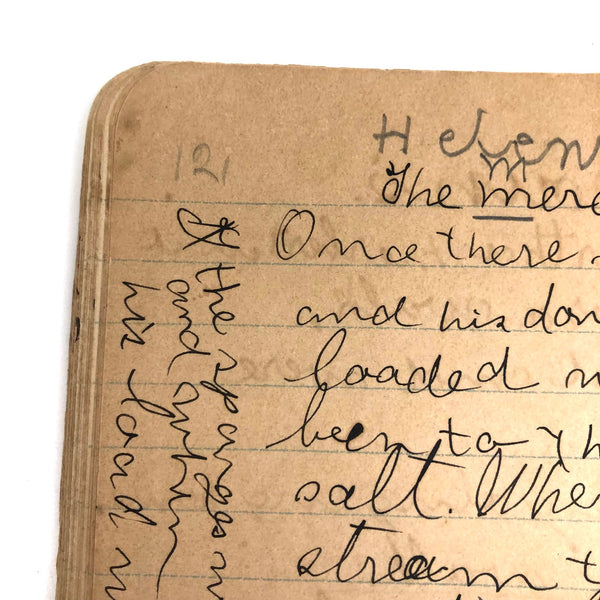 121
Helen
m
The mere
Once there
and his don
loaded
been to th
salt. Whe
stream t
the sponges
and
his load